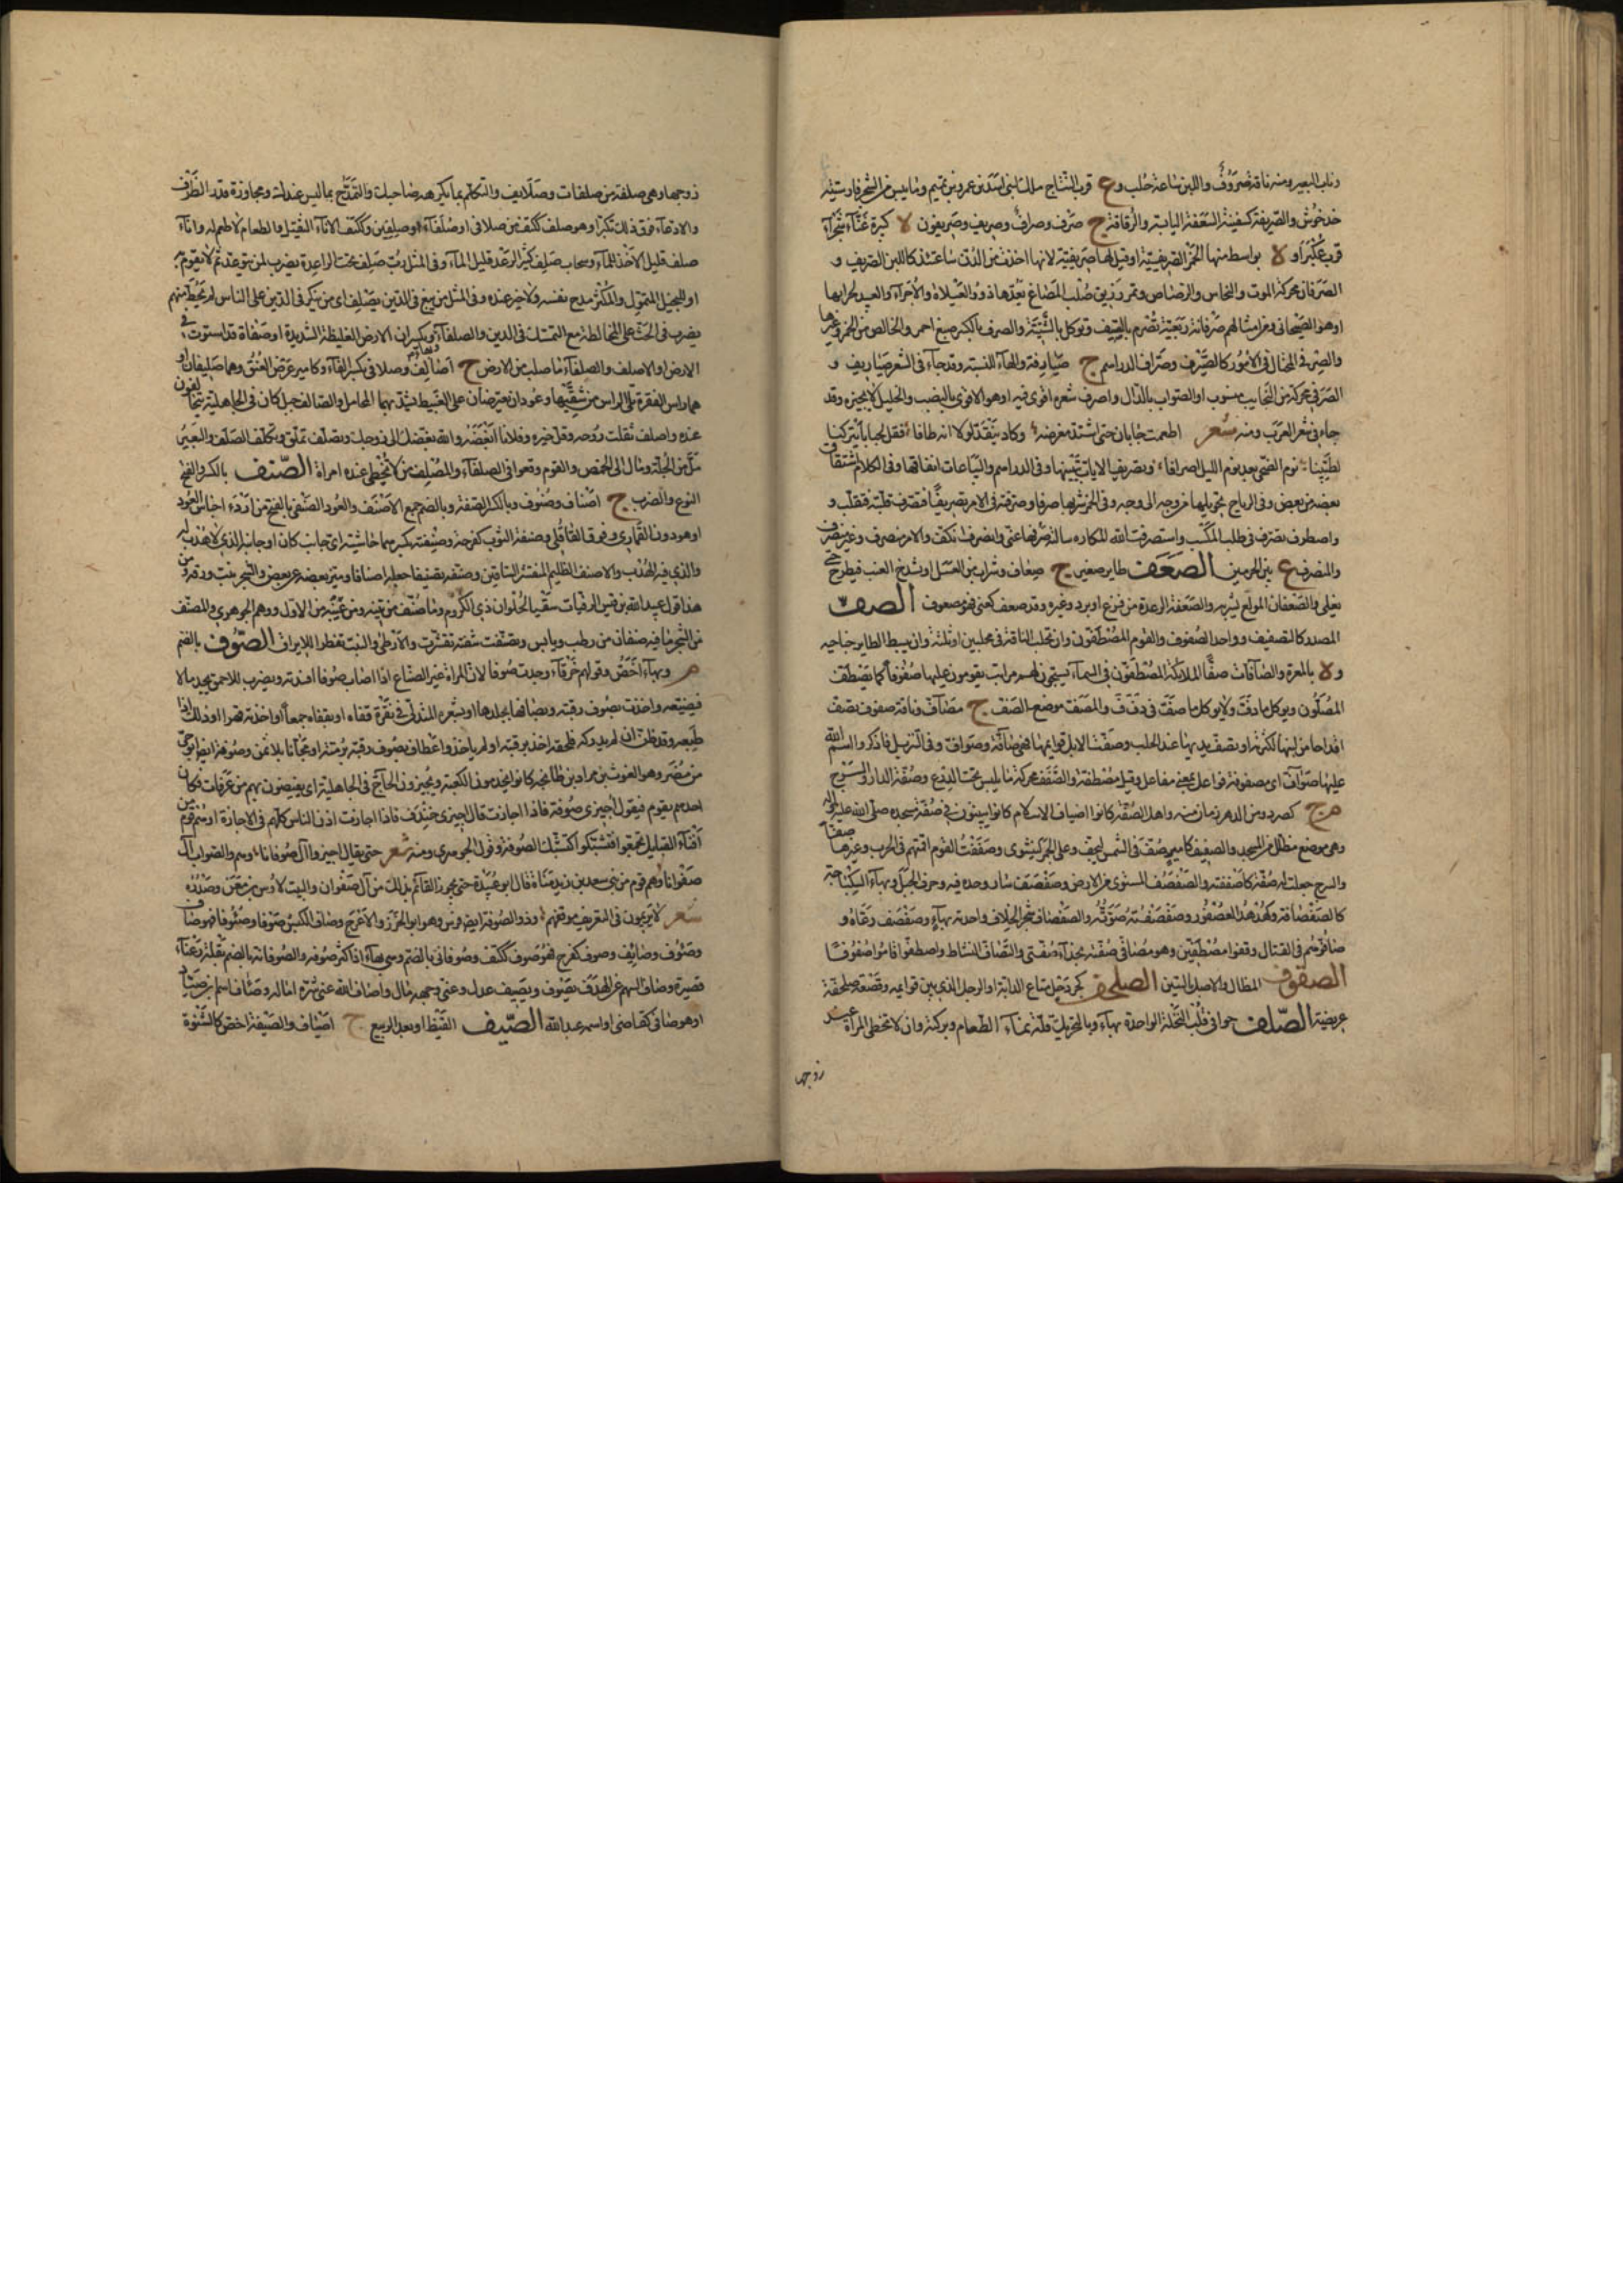 وناب البعير ومنه ناقة صروف واللبن ساعة حلب وع قرب النباج ملك لبني اسد بن عمرو بن تميم وما يبس من الشجر فارسيته
خدخوش والصريفة كسفينة السعفة اليابسة والرقاقة ج صرف وصراف وصريف وصريفون لا كبيرة غناء شجراء
قرب عكبراء و لا بواسط منها الخمر الصريفية او قيل لها صريفية لانها اخذت من الدن ساعتئذ كاللبن الصريف و
الصرفان محركة الموت والنحاس والرصاص وتمر رزين صلب المضاغ يعدها ذوو العيلات والاجراء والعبيد لجزايها
او هو الصيحاني ومن امثالهم صرفانة ربعية تصرم بالصيف وتوكل بالشتية والصرف بالكسر صبغ احمر والخالص من الخمر وغيرها
والصيرفي المحتال في الامور كالصيرف وصراف الدراهم ج صيارفة والهاء للنسبة وقد جاء في الشعر صياريف و
الصرفي محركة من النجايب منسوب او الصواب بالدال واصرف شعره اقوى فيه او هو الاقواء بالنصب والخليل لا يجيزه وقد
جاء في شعر العرب ومنه شعر اطعمت جابان حتى اشتد مغرضه وكاد ينقد لولا انه طافا فقل لجابان يتركنا
لطيتنا نوم الضحى بعد نوم الليل اسرافا وتصريف الايات تبيينها وفي الدراهم والبياعات انفاقها وفي الكلام اشتقاق
بعضه من بعض وفي الرياح تحويلها من وجه الى وجه وفي الخمر شربها صرفا وصرفته في الامر تصريفا فتصرف قلبته فتقلب و
واصطرف تصرف في طلب المكسب واستصرفت الله المكاره سالته صرفها عني وانصرف انكف والاسم منصرف وغير منصرف
والمنصرف ع بين الحرمين الصعف طاير صغير ج صعاف وشراب من العسل او شدخ العنب فيطرح حتى
يغلي والصعفان المولع بشربه والصعفة الرعدة من فزع او برد وغيره وقد صعف كعني فهو مصعوف الصف
المصدر كالتصفيف وواحد الصفوف والقوم المصطفون وان تحلب الناقة في محلبين او ثلثة وان يبسط الطاير جناحيه
و لا بالمعرة والصافات صفا الملايكة المصطفون في السماء يسبحون لهم مراتب يقومون عليها صفوفا كما يصطف
المصلون ويوكل ما دف ولا يوكل ما صف في د ف ف والمصف موضع الصف ج مصاف وناقة صفوف تصف
اقداحا من لبنها لكثرته او تصف يديها عند الحلب وصفت الابل قوايمها فهي صافة وصواف وفي التنزيل فاذكروا اسم الله
عليها صواف اي مصفوفة فواعل بمعنى مفاعل وقيل مصطفة والصفف محركة ما يلبس تحت الدرع وصفة الدار والسرج
م ج كصرد ومن الدهر زمان منه واهل الصفة كانوا اضياف الاسلام كانوا يبيتون في صفة مسجده صلى الله عليه واله
وهي موضع مظلل من المسجد والصفيف كامير صف في الشمس ليجف وعلى الجمر لينشوي وصففت القوم اقمتهم في الحرب وغيرها صفا
والسرج جعلت له صفة كاصففته والصفصف المستوي من الارض وصفصف سار وحده فيه وحرف الجبل وبهاء السكباجة
كالصفصافة وكهدهد العصفور وصفصفته صوته والصفصاف شجر الخلاف واحدته بهاء وصفصف رعاه و
صافوهم في القتال وقفوا مصطفين وهو مصافي صفته بحذاء صفتي والتصاف التساط واصطفوا قاموا صفوفا
الصقوف المظال والاصل السين الصلحف كجردحل متاع الدابة او الرجل الذي بين قوايمه وقصعة صلحفة
عريضة الصلف خوافي قلب النخلة الواحدة بهاء وبالتحريك قلة نماء الطعام وبركته وان لا تحظى المراة عند
زوجها
زوجها وهي صلفة من صلفات وصلايف والتكلم بما يكرهه صاحبك والتمدح بما ليس عندك ومجاوزة قدر الظرف
والادعاء فوق ذلك تكبرا وهو صلف ككتف من صلافى وصلفاء وصلفين وككتف الاناء الثقيل والطعام لا طعم له واناء
صلف قليل الاخذ للماء وسحاب صلف كثير الرعد قليل الماء وفي المثل رب صلف تحت الراعدة يضرب لمن يتوعد ثم لا يقوم به
او للبخيل المتمول والمكثر مدح نفسه ولا خير عنده وفي المثل من يبغ في الدين يصلف اي من ينكر في الدين على الناس لم يحظ منهم
يضرب في الحث على المخالطة مع التمسك في الدين والصلفاء ويكسران الارض الغليظة الشديدة او صفاة قد استوت في
الارض او الاصلف والصلفاء ما صلب من الارض ج اصالف وصلافى بكسر الفاء وكامير عرض العنق وهما صليفان او
هما راس الفقرة تلي الراس من شقيها وعودان يعترضان على الغبيط تشد بهما المحامل والصالف جبل كان في الجاهلية يتحالفون
عنده واصلف ثقلت روحه وقل خيره وفلانا ابغضه والله بغضك الى زوجك وتصلف تملق وتكلف الصلف والبعير
مل من الخلة ومال الى الحمض والقوم وقعوا في الصلفاء والمصلف من لا تحظى عنده امراة الصنف بالكسر والفتح
النوع والضرب ج اصناف وصنوف وبالكسر الصفة وبالضم جمع الاصنف والعود الصنفي بالفتح من اردء اجناس العود
او هو دون القماري وفوق القاقلي وصنفة الثوب كفرحة وصنفته بكسرهما حاشيته اي جانب كان او جانبه الذي لا هدب له
والذي فيه الهدب والاصنف الظليم المنقشر الساقين وصنفه تصنيفا جعله اصنافا وميز بعضه عن بعض والشجر نبت ورقه ومن
هذا قول عبيد الله بن قيس الرقيات سقيا لحلوان ذي الكروم وما صنف من تينه ومن عنبه من الاول ووهم الجوهري والمصنف
من الشجر ما فيه صنفان من رطب ويابس وتصنفت شفته تقشرت والارطى والنبت تفطر للايراق الصوف بالضم
م وبهاء اخص وقولهم خرقاء وجدت صوفا لان المراة غير الصناع اذا اصاب صوفا افسدته ويضرب للاحمق يجد مالا
فيضيعه واخذت بصوف رقبته وبصافها بجلدها او بشعره المتدلي في نقرة قفاه او بقفاه جمعا او اخذته قهرا او ذلك اذا
طبعه وقد ظن ان لم يدركه فلحقه اخذ برقبته او لم ياخذ واعطاف بصوف رقبته برمته او مجانا بلا ثمن وصوفة ايضا ابو حي
من مضر وهو الغوث بن مر اد بن طابخة كانوا يخدمون الكعبة ويجيزون الحاج في الجاهلية اي يفيضون بهم من عرفات فكان
احدهم يقوم فيقول اجيزي صوفة فاذا اجازت قال اجيزي خندف فاذا اجازت اذن للناس كلهم في الاجازة او هم قوم من
افناء القبايل تجمعوا فتشبكوا كتشبك الصوفة وقول الجوهري ومنه شعر حتى يقال اجيزوا آل صوفانا وهم والصواب آل
صفوانا وهم قوم من بني سعد بن زيد مناة قال ابو عبيدة حتى يجوز القائم بذلك من آل صفوان والبيت لاوس بن مغراء وصدره
شعر لا يريمون في التعريف موقفهم وذو الصوفة ايضا فرس وهو ابو الخزز والاعوج وصاف الكبش صوفا وصؤوفا فهو صاف
وصوف وصايف وصوف كفرح فهو صوف ككتف وصوفاني بالضم وهي بهاء اذا كثر صوفه والصوفانة بالضم بقلة زغباء
قصيرة وصاف السهم عن الهدف يصوف ويصيف عدل وعني وجهه مال واصاف الله عني شره اماله وصاف اسم ابن صياد
او هو صافي كقاضي او اسمه عبدالله الصيف القيظ او بعد الربيع ج اصياف والصيفة اخص كالشتوة